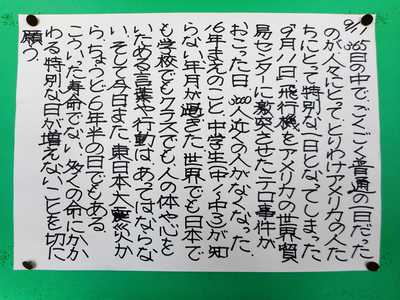 9/11
365日の中でごくごく普通の一日だった
のが人々にとって、とりわけアメリカの人た
ちにとって特別な一日となってしまった
「9月11日」飛行機をアメリカの世界貿
易センターに激突させたテロ事件が
おこった日。3000人近くの人がなくなった。
16年まえのこと、中学生(中1〜中3)が知
らない年月が過ぎた。世界でも日本で
も学校でもクラスでも、人の体や心を
いためる言葉や行動はあってはならな
い。そして今日また、東日本大震災か
ら、ちょうど6年半の日でもある。
こういった寿命でない多くの命にかか
わる特別な日が増えないことを切に
願う。